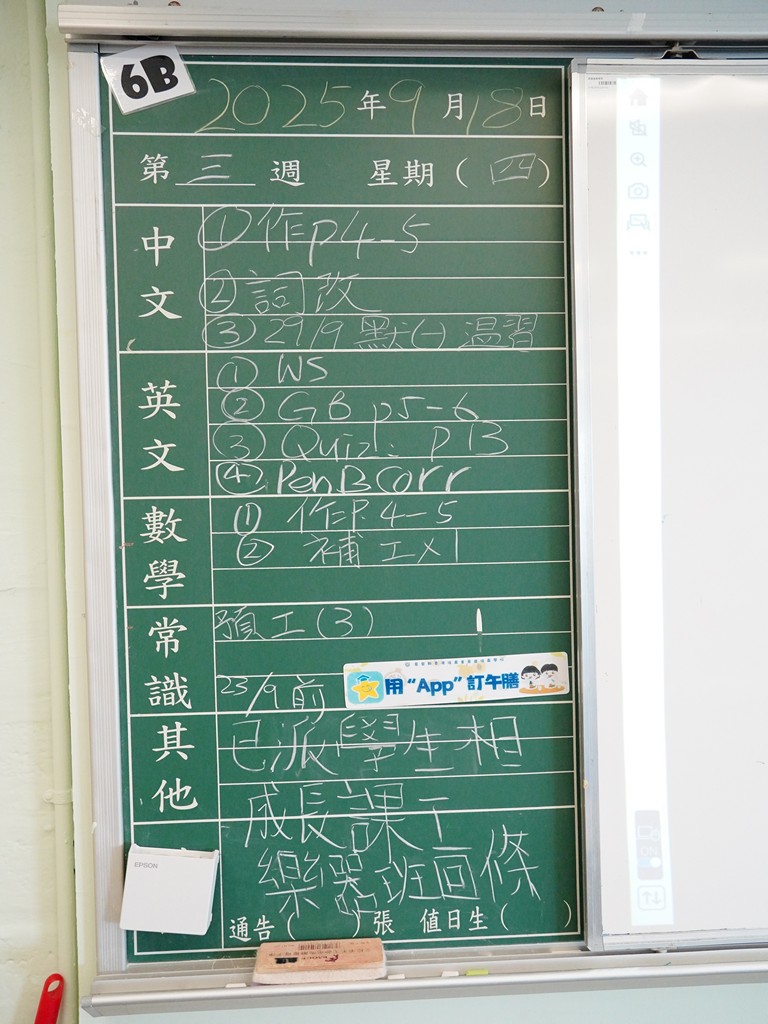 6B
2025年9月18日
第三週 星期(四)
中文
①作P4-5
②詞改
③29/9默(一)温習
英文
① WS
② GB p5-6
③ Quiz1: p 13
④ Pen B Corr
數學
① 作P.4-5
② 補工x1
常識
預工(3)
23/9前
用“App”訂午膳
其他
已派學生相
成長課T
樂器班回條
EPSON
通告( )張 值日生( )